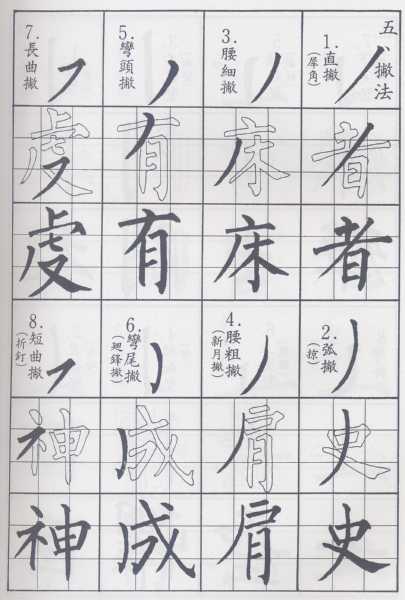 五 撇法
1.直撇
(犀角)
3.腰細撇
5.彎頭撇
7.長曲撇
者 床 有
者 床 有
2.弧撇
(掠)
4.腰粗撇
(新月撇)
6.彎尾撇
(迴鋒撇)
8.短曲撇
(折釘)
史 肩 成 神
史 肩 成 神